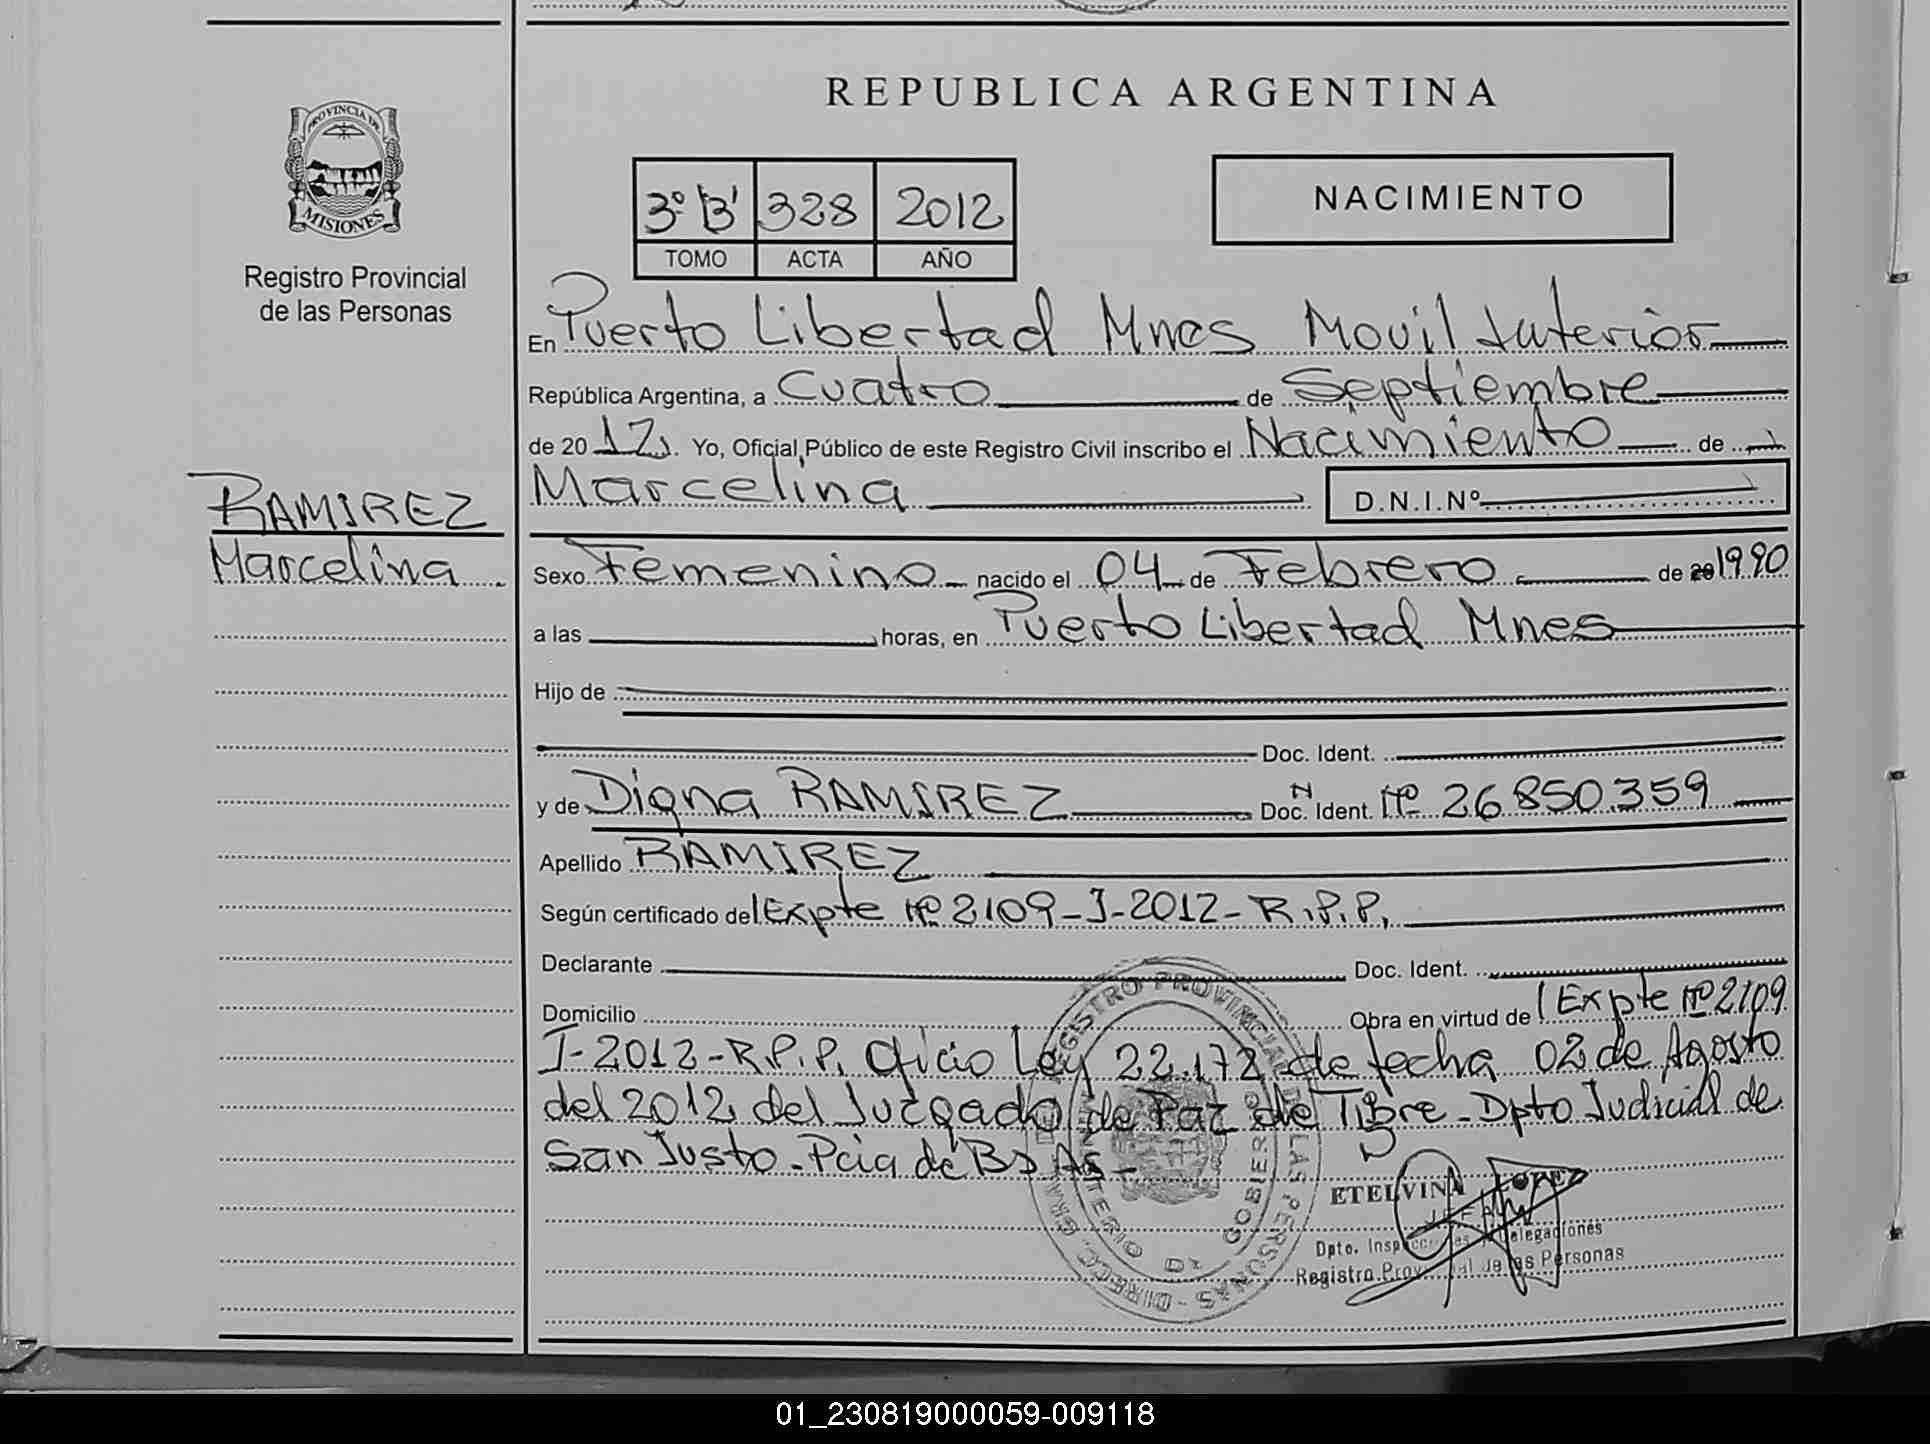 REPUBLICA ARGENTINA
PROVINCIA DE
MISIONES
Registro Provincial
de las Personas
3º "B" 328 2012
TOMO ACTA AÑO
NACIMIENTO
En Puerto Libertad Mnes Movil Interior
República Argentina, a Cuatro de Septiembre
de 2012. Yo, Oficial Público de este Registro Civil inscribo el Nacimiento de
Marcelina D.N.I.Nº
RAMIREZ
Marcelina
Sexo Femenino nacido el 04 de Febrero de 20 1990
a las horas, en Puerto Libertad Mnes
Hijo de
Doc. Ident.
y de Digna RAMIREZ Doc. N Ident. Nº 26.850.359
Apellido RAMIREZ
Según certificado del Expte Nº 2109-I-2012-R.P.P.
Declarante Doc. Ident.
Domicilio Obra en virtud del Expte Nº 2109
I-2012-R.P.P. Oficio Ley 22.172 de fecha 02 de Agosto
del 2012 del Juzgado de Paz de Dpto Judicial de
San Justo - Pcia de Bs As -
REGISTRO PROVINCIAL DE LAS PERSONAS - DIRECC. GRAL.
MINISTERIO DE GOBIERNO
ETELVINA LOPEZ
JEFA
Dpto. Inspecciones y Delegaciones
Registro Provincial de las Personas
01_230819000059-009118